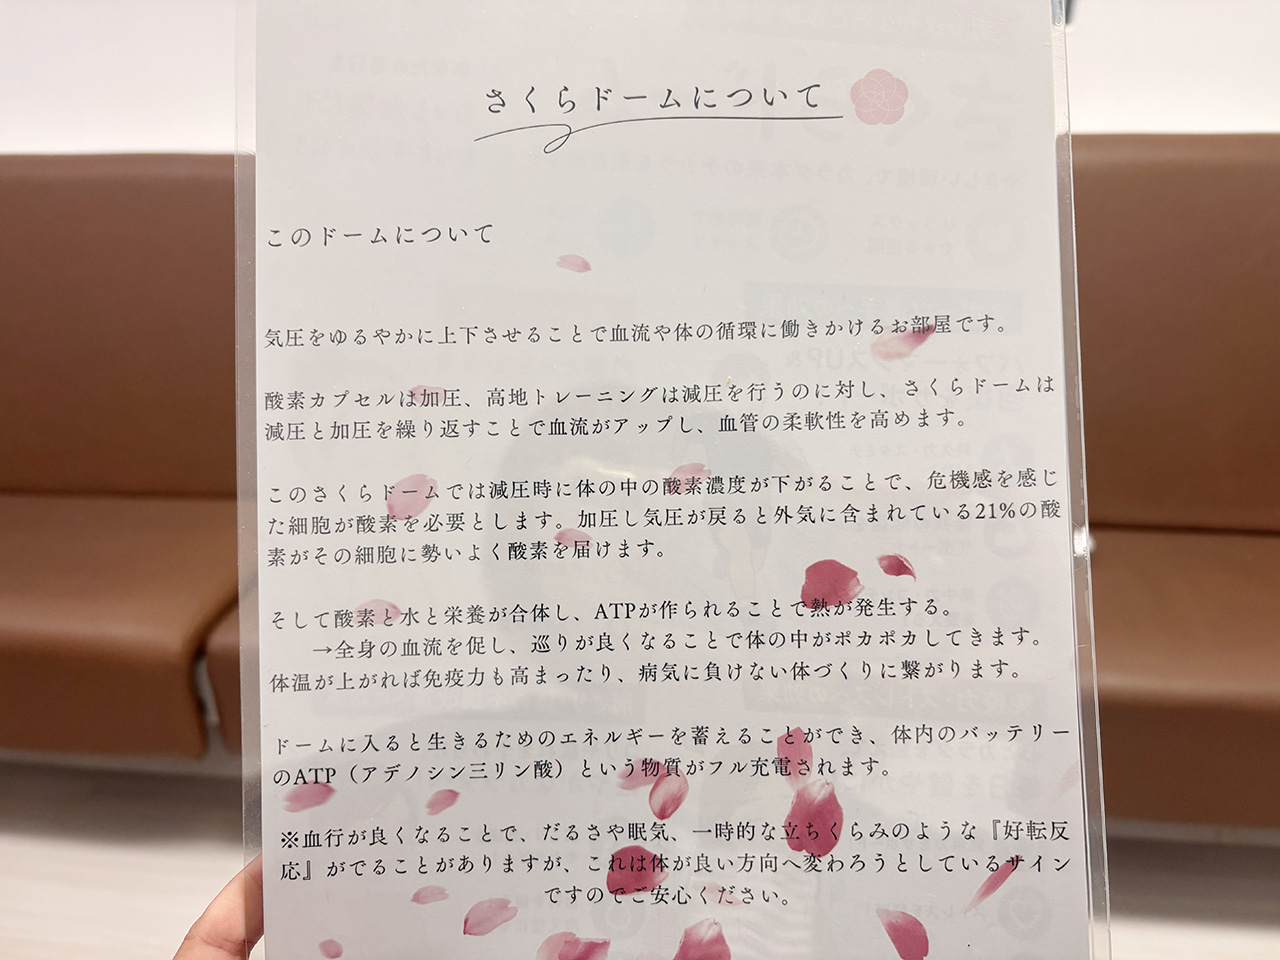 さくらドームについて
このドームについて
気圧をゆるやかに上下させることで血流や体の循環に働きかけるお部屋です。
酸素カプセルは加圧、高地トレーニングは減圧を行うのに対し、さくらドームは
減圧と加圧を繰り返すことで血流がアップし、血管の柔軟性を高めます。
このさくらドームでは減圧時に体の中の酸素濃度が下がることで、危機感を感じ
た細胞が酸素を必要とします。加圧し気圧が戻ると外気に含まれている21%の酸
素がその細胞に勢いよく酸素を届けます。
そして酸素と水と栄養が合体し、ATPが作られることで熱が発生する。
→全身の血流を促し、巡りが良くなることで体の中がポカポカしてきます。
体温が上がれば免疫力も高まったり、病気に負けない体づくりに繋がります。
ドームに入ると生きるためのエネルギーを蓄えることができ、体内のバッテリー
のATP（アデノシン三リン酸）という物質がフル充電されます。
※血行が良くなることで、だるさや眠気、一時的な立ちくらみのような『好転反
応』がでることがありますが、これは体が良い方向へ変わろうとしているサイン
ですのでご安心ください。